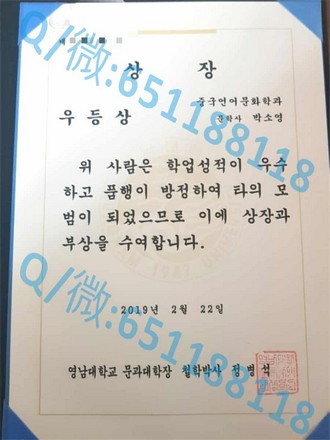 상 장
중국언어문화학과
우등상
문학사 박소영
위 사람은 학업성적이 우수
하고 품행이 방정하여 타의 모
범이 되었으므로 이에 상장과
부상을 수여합니다.
2019년 2월 22일
영남대학교 문과대학장 철학박사 정병석
Q/微:651188118
Q/微:651188118
Q/微:651188118